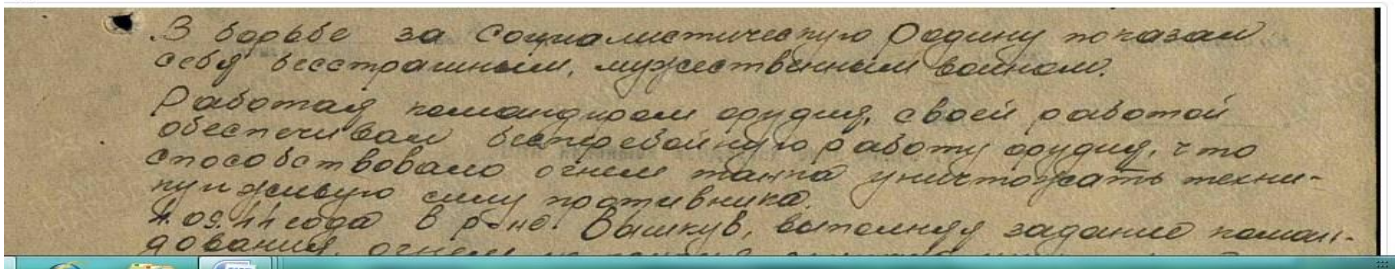 В борьбе за Социалистическую Родину показал
себя бесстрашным, мужественным воином.
Работая командиром орудия, своей работой
обеспечивал бесперебойную работу орудия, что
способствовало огнем танка уничтожать техни-
ку и живую силу противника.
09.44 года в р-не. Вышкув, выполняя задание коман-
дования, огнем